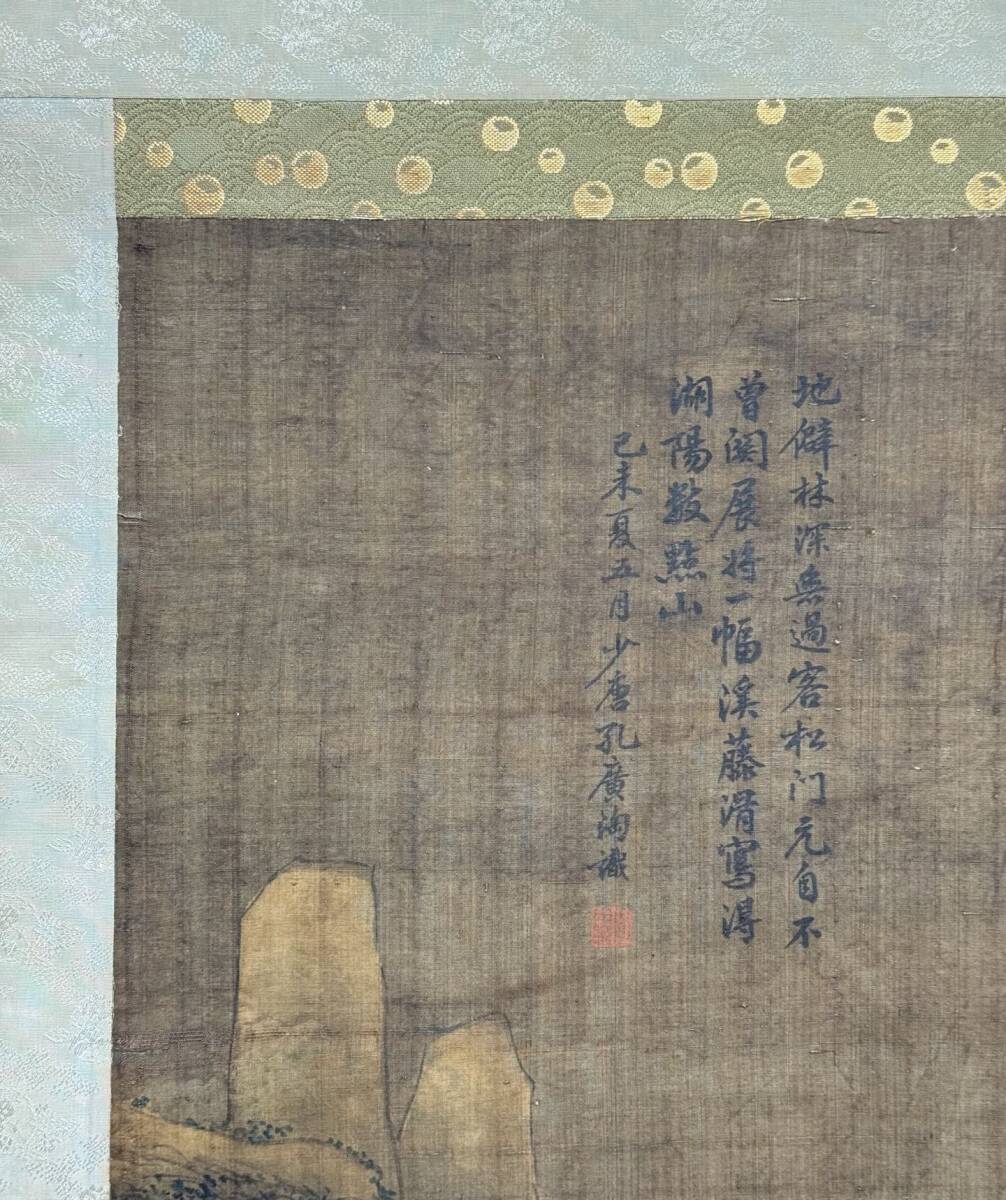 地僻林深無過客松门元自不
曾関展将一幅溪藤滑寫得
湖陽數點山
己未夏五月少唐孔廣陶識